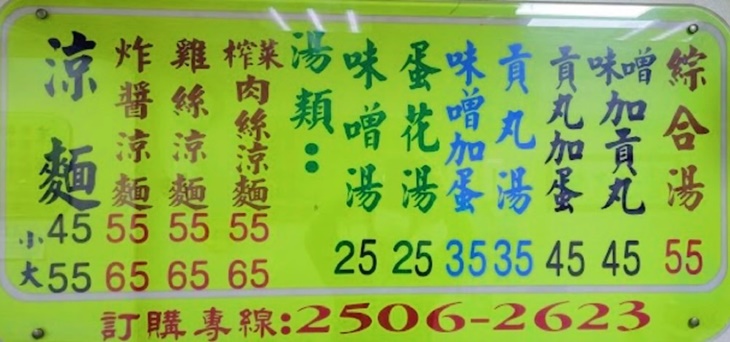 涼麵
炸醬涼麵
雞絲涼麵
榨菜肉絲涼麵
小 45 55 55 55
大 55 65 65 65
湯類：
味噌湯 25
蛋花湯 25
味噌加蛋 35
貢丸湯 35
貢丸加蛋 45
味噌加貢丸 45
綜合湯 55
訂購專線:2506-2623